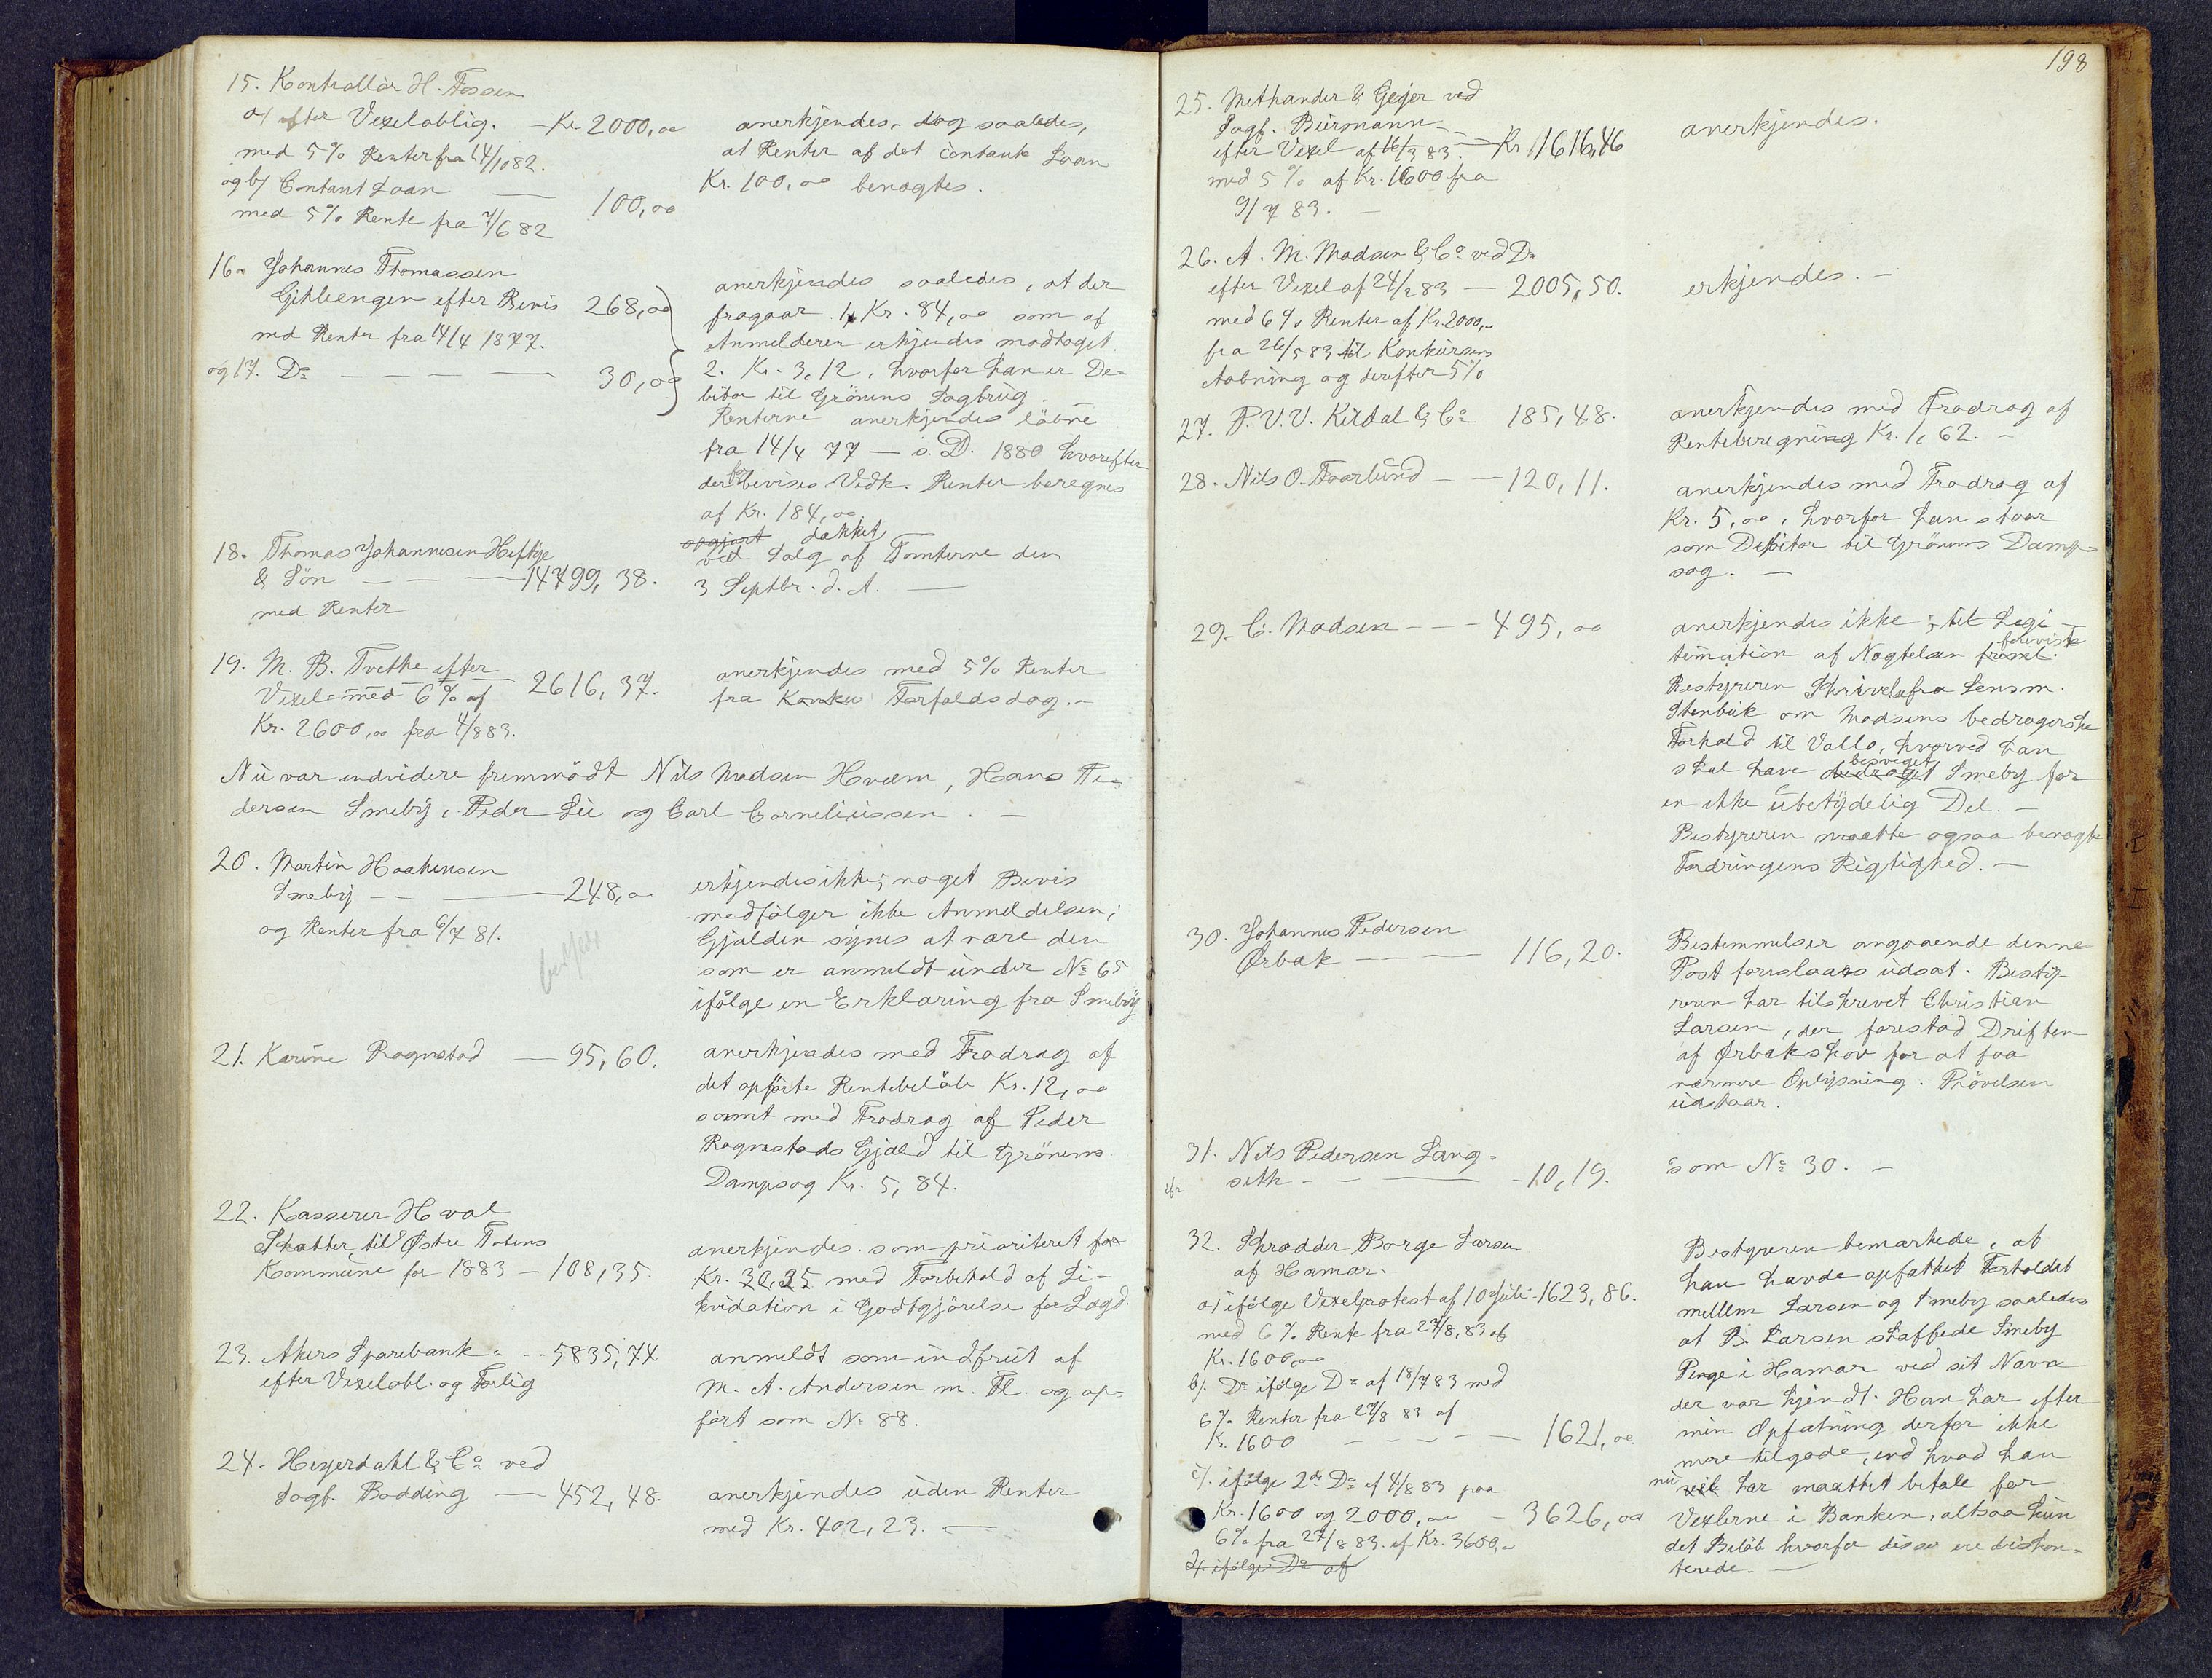 15. Kontrollør H. Fossen
a/ efter Vexeloblig. - Kr 2000,00
med 5% Renter fra 14/10 82.
og b/ Contant Laan —
100,00
med 5% Rente fra 7/6 82
anerkjendes, dog saaledes,
at Renter af det contante Laan
Kr. 100,00 benægtes.
16. Johannes Thomassen
Gihleengen efter Bevis 268,00
med Renter fra 14/4 1877.
og 17. Do — — — — 30,00
anerkjendes saaledes, at der
fragaar. 1, Kr. 84,00 som af
Anmelderen erkjendes modtaget.
2. Kr. 3,12, hvorfor han er De-
bitor til Grönens Sagbrug.
Renterne anerkjendes løbne
fra 14/4 77 — s. D. 1880 hvorefter
for
der bevises Vedk. Renter beregnes
af Kr. 184,00.
18. Thomas Johannesen Heftye
& Søn — — — 14799,38.
med Renter
opgjort dækket
ved Salg af Tomterne den
3 Septbr. d. A. —
19. M. B. Tvethe efter
Vexel med 6% af 2616,37.
Kr. 2600,00 fra 4/8 83.
anerkjendes med 5% Renter
fra Konku Forfaldsdag. -
Nu var endvidere fremmødt Nils Madsen Hveem, Hans Pe-
dersen Smeby, Peder Lie og Carl Corneliussen. —
20. Martin Haakensen
Smeby — — — 248,00
og Renter fra 6/7 81.
erkjendes ikke; noget Bevis
medfølger ikke Anmeldelsen;
Gjælden synes at være den
som er anmeldt under No 65
ifølge en Erklæring fra Smeby
21. Karine Rognstad — 95,60.
anerkjendes med Fradrag af
det opførte Rentebeløb Kr. 12,00
samt med Fradrag af Peder
Rognstads Gjæld til Grönens
Dampsag Kr. 5,84.
22. Kasserer Hval
Skatter til Østre Totens
Kommune for 1883 — 108,35.
anerkjendes. som prioriteret for
Kr. 30,35 med Forbehold af Li-
kvidation i Godtgjørelse for Lægd.
23. Akers Sparebank - - 5835,74
efter Vexelobl. og Forlig
anmeldt som indfriet af
M. A. Andersen m. Fl. og op-
ført som No 88.
24. Heyerdahl & Co ved
Sagf. Bødding — 452,48.
anerkjendes uden Renter
med Kr. 402,23. —
198
25. Methander & Geijer ved
Sagf. Bürmann - - -
efter Vexel af 16/3 83. - Kr 1616,46
med 5% af Kr. 1600 fra
9/7 83. —
anerkjendes.
26. A. M. Madsen & Co ved Do
efter Vexel af 24/2 83 — 2005,50.
med 6% Renter af Kr. 2000,00
fra 26/5 83 til Konkursens
Aabning og derefter 5%
erkjendes. -
27. P. V. V. Kildal & Co 185,48.
anerkjendes med Fradrag af
Renteberegning Kr. 1,62. -
28. Nils O. Faarlund - - 120,11.
anerkjendes med Fradrag af
Kr. 5,00, hvorfor han staar
som Debitor til Grönens Damp-
sag. —
29. C. Madsen - - - 495,00
anerkjendes ikke; til Legi-
foreviste
timation af Nægtelsen freml.
Bestyreren Skrivelse fra Lensm.
Stenbük om Madsens bedragerske
Forhold til Vallø, hvorved han
besveget
skal have bedraget Smeby for
en ikke ubetydelig Del. —
Bestyreren maatte ogsaa benægte
Fordringens Rigtighed. —
30. Johannes Pedersen
Ørbæk — — — 116,20.
Bestemmelser angaaende denne
Post foreslaaes udsat. Besty-
reren har tilskrevet Christian
Larsen, der forestod Driften
af Ørbækskov for at faa
nærmere Oplysning. Prøvelsen
udstaar.
31. Nils Pedersen Lang-
seth - - — - 10,19.
som No 30. -
32. Skrædder Borge Larsen
af Hamar.
a) ifølge Vexelprotest af 10 Juli - 1623,86.
med 6% Rente fra 27/8, 83 af
Kr. 1600,00
b). Do ifølge Do af 18/7 83 med
6% Renter fra 27/8 83 af
Kr. 1600 — — — — 1621,00
c). ifølge 2de Do af 4/8 83 paa
Kr. 1600 og 2000,00 - 3626,00
6% fra 27/8 83. af Kr. 3600,00
d). ifølge Do af
Bestyreren bemærkede, at
han havde opfattet Forholdet
mellem Larsen og Smeby saaledes
at B. Larsen skaffede Smeby
Penge i Hamar ved sit Navn
der var kjendt. Han har efter
min Opfatning derfor ikke
mere tilgode, end hvad han
nu
vil har maattet betale for
Vexlerne i Banken, altsaa kun
det Beløb hvorfor disse ere diskon-
terede. —